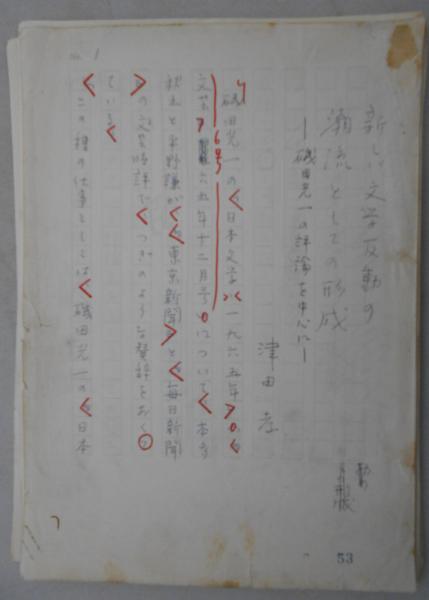 No. 1
新しい文学反動の
潮流としての形成
―磯田光一の評論を中心に―
津田孝
磯田光一の「日本文学」(一九六五年
文芸」6号 六五年十二月号)について、本多
秋五と平野謙が「東京新聞」と「毎日新聞
」の文芸時評で、つぎのような賛辞をおく
っている。
この種の仕事としては、磯田光一の「日本
53